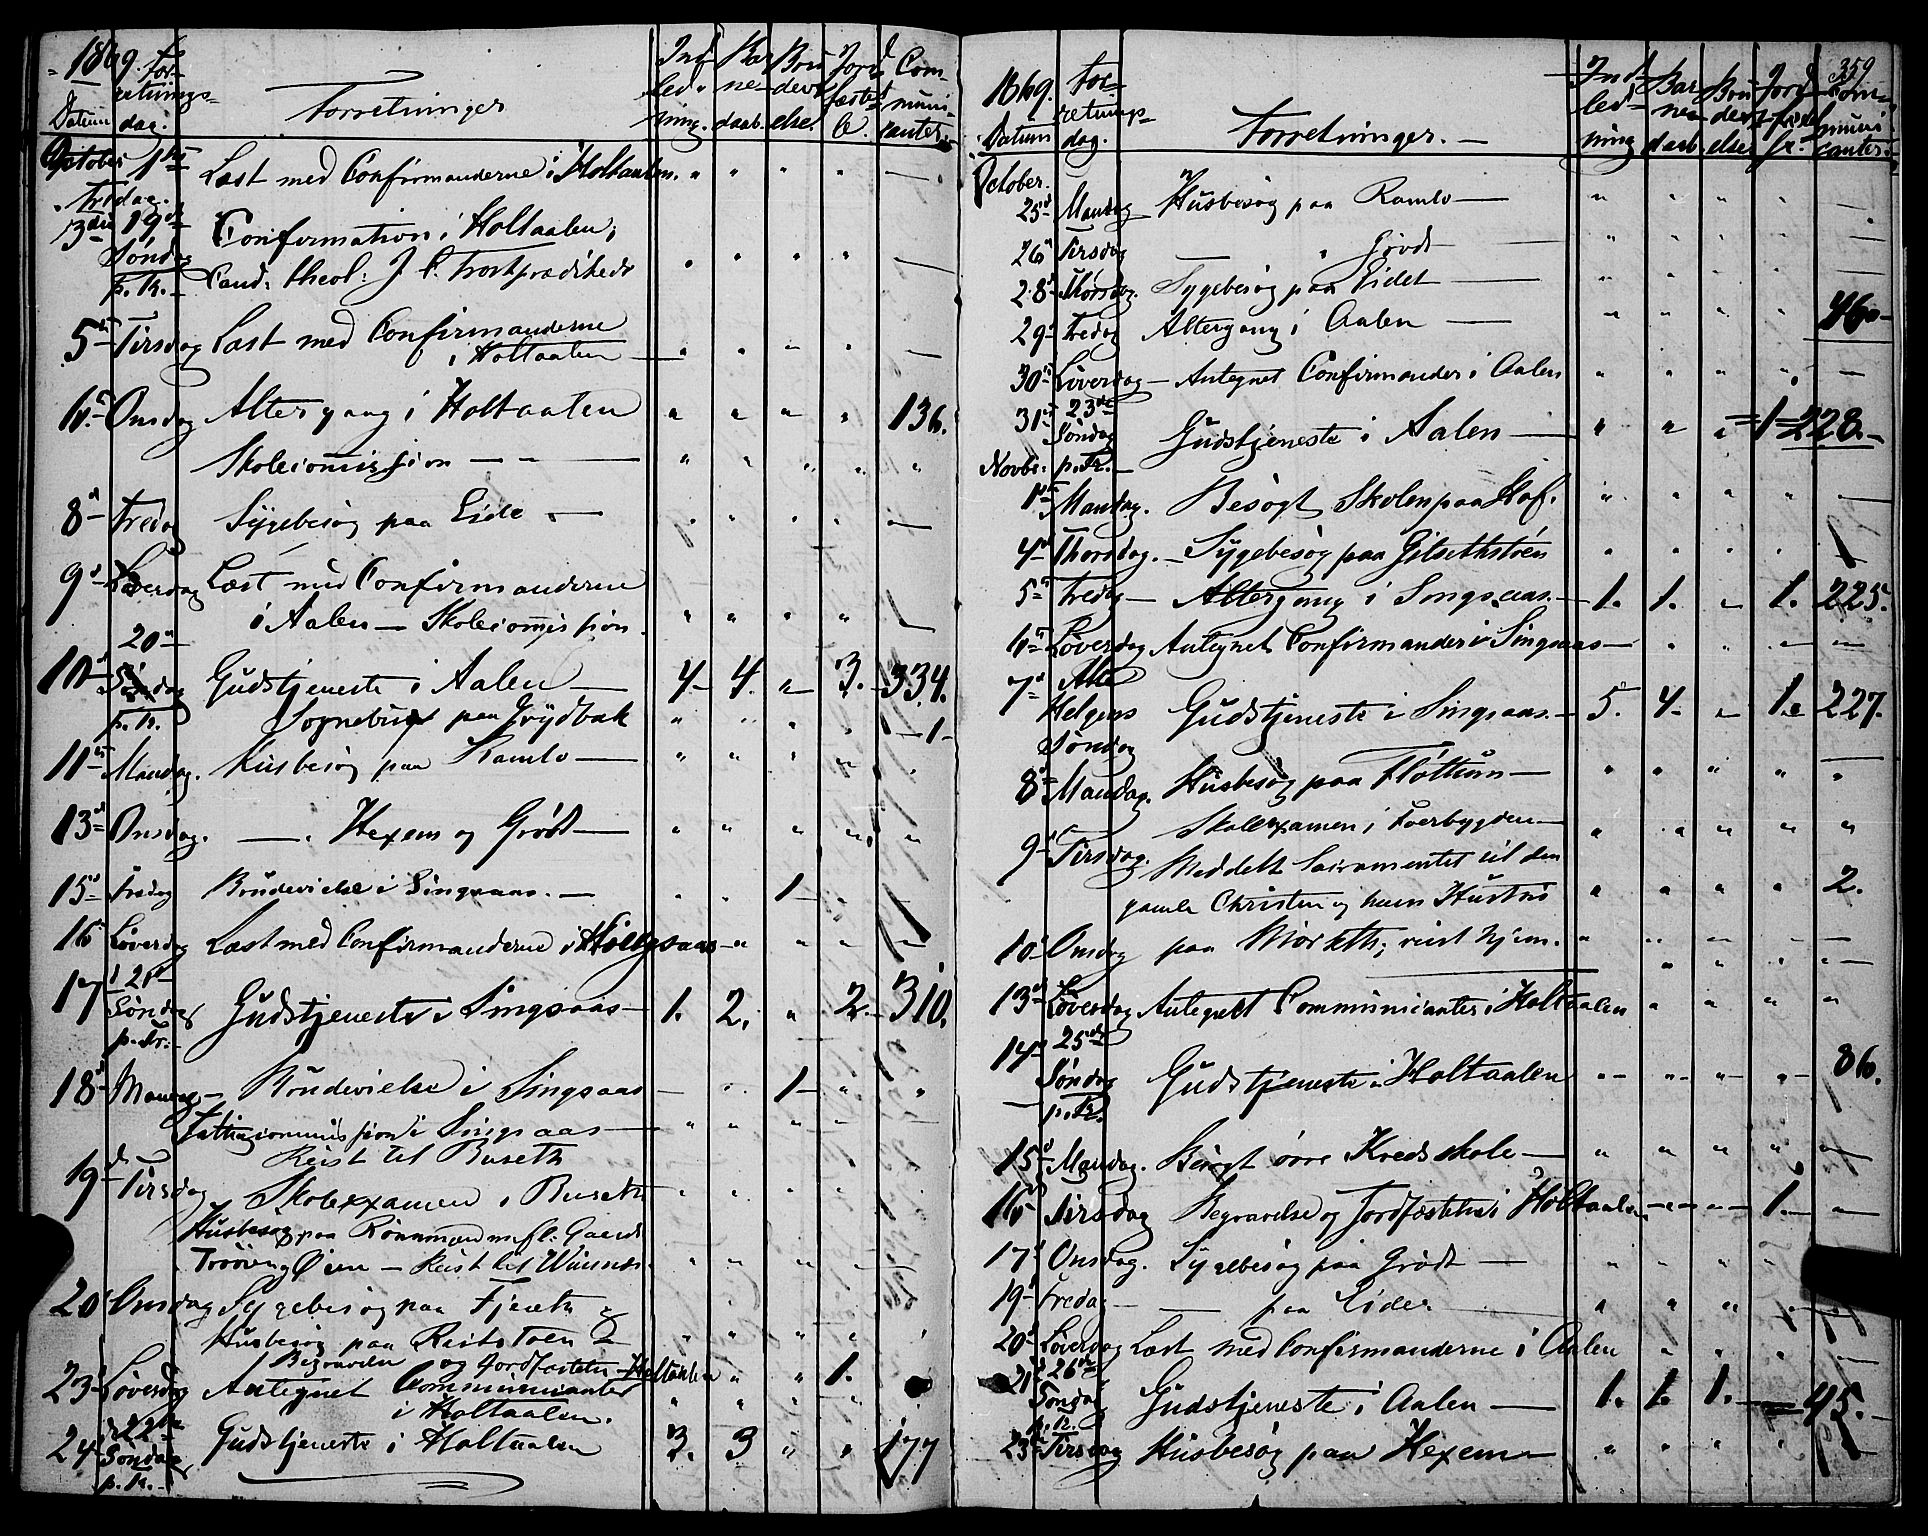 1869. For-
retnings-
Datum dag. Forretninger Ind- led- ning. Bar- ne- daab. Bru- devi- else. Jord- fæstel- se. Com- muni- canter.
October 1ste Læst med Confirmanderne i Holtaalen. " " " " —
Fredag.
3die 19de Confirmation i Holtaalen;
Søndag Cand. theol: J. C. prædikede " " " " —
p. Tr.
5te Tirsdag Læst med Confirmanderne
i Holtaalen — " " " " —
6te Onsdag Altergang i Holtaalen " " " " 136.
Skolecommission — — — " " " " "
8de Fredag Sygebesøg paa Eide — " " " " —
9de Løverdag Læst med Confirmanderne
i Aalen — Skolecommission. " " " " —
20de
10de Søndag Gudstjeneste i Aalen — 4 4. " 3. 334.
p. Tr. Sognebud paa Grydbak " " " " 1
11te Mandag. Husbesøg paa Ramlo — " " " " "
13de Onsdag. — " Hexem og Grødt — " " " " "
15de Fredag Brudevielse i Singsaas. — " " 1 " —
16 Løverdag Læst med Confirmanderne i Singsaas " " " —
17 21de
Søndag Gudstjeneste i Singsaas — 1. 2. " 2. 310.
p. Tr.
18de Mandag — Brudevielse i Singsaas — " 1 " "
Fattigcommission i Singsaas — " " " "
Reist til Buseth
19de Tirsdag Skoleexamen i Buseth " " " " "
Husbesøg paa
og Øien — Reist til " " " " "
20de Onsdag Sygebesøg paa &
Husbesøg paa " " " " "
Begravelse og Jordfæstelse Holtaalen " " 1.
23de Løverdag Antegnet Communicanter
i Holtaalen. " " " "
24de 22de
Søndag Gudstjeneste i Holtaalen 3. 3 " " 177
p. Tr.
359
1869. For-
retnings-
Datum dag. Forretninger. — Ind- led- ning Bar- ne- daab Bru- devi- else Jord- fæstel- se. Com- muni- canter.
October.
25de Mandag Husbesøg paa Ramlo — " " " " —
26de Tirsdag — " Grødt — " " " " —
28de Thorsdag. Sygebesøg paa Eidet — " " " " —
29de Fredag Altergang i Aalen — " " " " 46
30te Løverdag — Antegnet Confirmander i Aalen " " " " —
31te 23de
Søndag Gudstjeneste i Aalen — " " " 1 228.
Novbr. p. Tr. —
1ste Mandag. Besøgt Skolen paa Hof. " " " " —
4de Thorsdag. — Sygebesøg paa Gilsethstøen " " " "
5te Fredag — Altergang i Singsaas. — 1. 1. " 1. 225.
6te Løverdag Antegnet Confirmander i Singsaas — " " — —
7de Alle
Helgens Gudstjeneste i Singsaas. — 5. 4. " 1. 227.
Søndag
8de Mandag. Husbesøg paa Fløttum — " " " " "
Skoleexamen i — " " " " "
9de Tirsdag. Meddelt Sacramentet til den
gamle Christen og hans Hustru " " " " 2.
10de Onsdag paa ; reist hjem. " " " " —
13de Løverdag Antegnet Communicanter i Holtaalen " " " "
14de 25de
Søndag Gudstjeneste i Holtaalen " " " " 86.
p. Tr.
15de Mandag. Besøgt øvre Kredsskole — " " " " "
16de Tirsdag Begravelse og Jordfæstelse i Holtaalen " " 1. —
17de Onsdag. Sygebesøg paa Grødt — " " " " "
19de Fredag — — paa Eidet " " "
20de Løverdag Læst med Confirmanderne i Aalen " " " "
21de 26de
Søndag Gudstjeneste i Aalen — 1. 1. 1. — 45.
p. Tr.
23de Tirsdag Husbesøg paa Hexem — " " " "